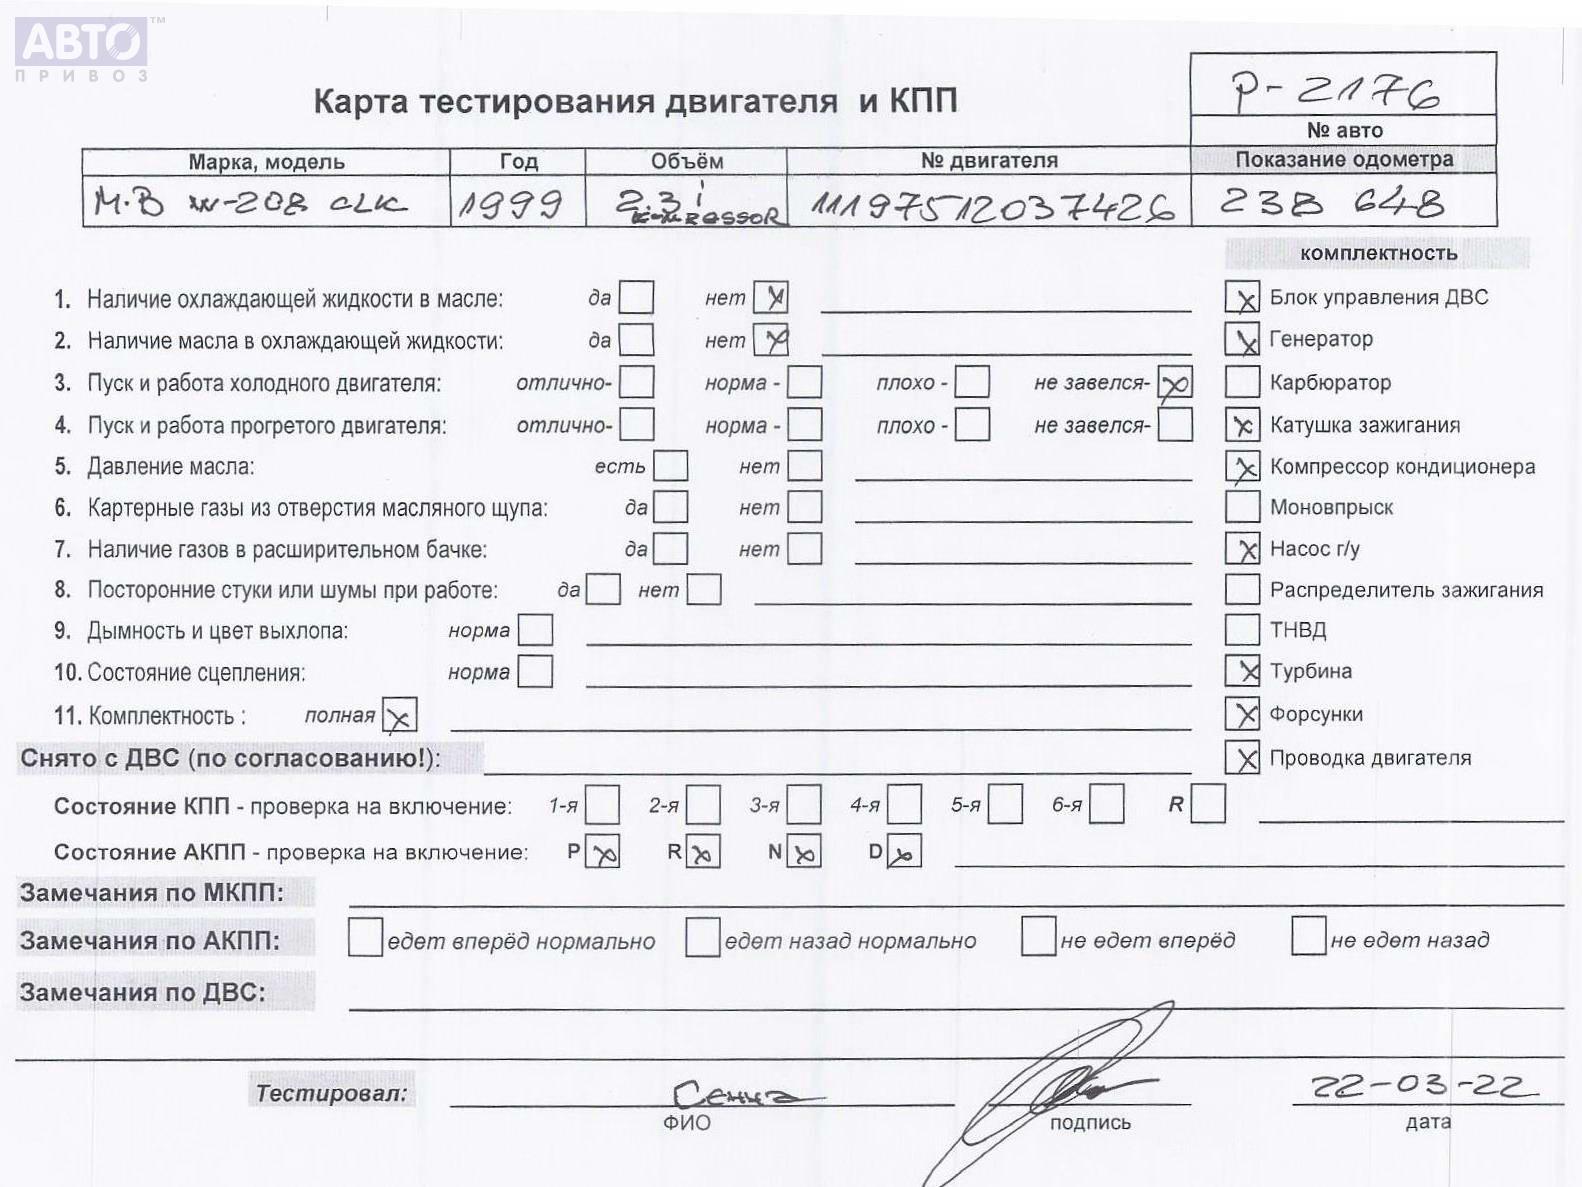 АВТО™
ПРИВОЗ
Карта тестирования двигателя и КПП
P-2176
№ авто
Марка, модель Год Объём № двигателя Показание одометра
M.B W-208 CLK 1999 2.3i 11197512037426 238 648
комплектность
1. Наличие охлаждающей жидкости в масле: да нет X Блок управления ДВС
2. Наличие масла в охлаждающей жидкости: да нет X Генератор
3. Пуск и работа холодного двигателя: отлично- норма - плохо - не завелся- Карбюратор
4. Пуск и работа прогретого двигателя: отлично- норма - плохо - не завелся- Катушка зажигания
5. Давление масла: есть нет Компрессор кондиционера
6. Картерные газы из отверстия масляного щупа: да нет Моновпрыск
7. Наличие газов в расширительном бачке: да нет Насос г/у
8. Посторонние стуки или шумы при работе: да нет Распределитель зажигания
9. Дымность и цвет выхлопа: норма ТНВД
10. Состояние сцепления: норма Турбина
11. Комплектность : полная Форсунки
Снято с ДВС (по согласованию!): Проводка двигателя
Состояние КПП - проверка на включение: 1-я 2-я 3-я 4-я 5-я 6-я R
Состояние АКПП - проверка на включение: P R N D
Замечания по МКПП:
Замечания по АКПП: едет вперёд нормально едет назад нормально не едет вперёд не едет назад
Замечания по ДВС:
Тестировал: 22-03-22
ФИО подпись дата